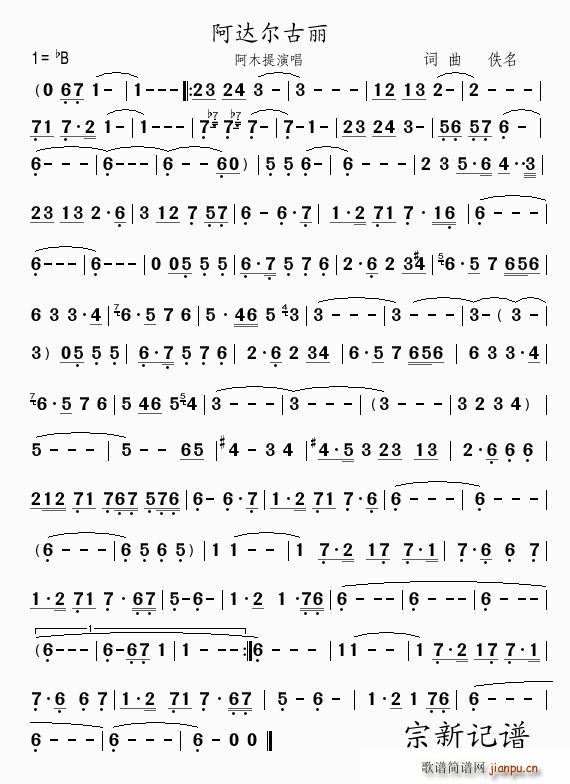 阿达尔古丽
1=♭B 阿木提演唱 词 曲 佚名
(0 67 1- | 1--- |: 23 24 3- | 3--- | 12 13 2- | 2--- |
71 7·2 1- | 1--- | 7 ♭7 7 ♭7 7- | 7-1- | 23 24 3- | 56 57 6- |
6--- | 6--- | 6--60) | 5 5 6- | 6--- | 2 3 5·6 4·· 3 |
23 13 2·6 | 3 12 7 57 | 6-6·7 | 1·2 71 7·16 | 6--- |
6--- | 6--- | 0 05 5 5 | 6·7 5 7 6 | 2·6 2 3#4 | 5 6·5 7 656 |
6 3 3·4 | 7 6·5 7 6 | 5·46 5 4 3 | 3--- | 3--- | 3-(3- |
3) 05 5 5 | 6·7 5 7 6 | 2·6 2 34 | 6·5 7 656 | 6 3 3·4 |
7 6·5 7 6 | 5 46 5 5 4 | 3--- | 3--- | (3--- | 3 2 3 4) |
5--- | 5--65 | #4-3 4 | #4·5 3 23 13 | 2·6 6 6 |
212 71 767 576 | 6-6·7 | 1·2 71 7·6 | 6--- | 6--- |
(6--- | 6 5 6 5) | 1 1-- | 1 7·2 17 7·1 | 7·6 6 7 |
1·2 71 7·67 | 5-6- | 1·2 1·76 | 6--- | 6--- |
1
(6--- | 6-67 1 | 1--- :| 6--- | 1 1-- | 1 7·2 17 7·1 |
7·6 6 7 | 1·2 71 7·67 | 5-6- | 1·2 1 76 | 6--- |
6--- | 6--- | 6-0 0 ‖
宗新记谱
歌谱简谱网
jianpu.cn